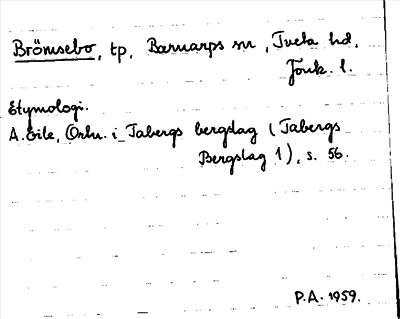 Brömsebo, tp, Barnarps sn, Tveta hd,
Jönk. l.
Etymologi.
A. Eile, Ortn. i Tabergs bergslag (Tabergs
Bergslag 1), s. 56.
P.A. 1959.